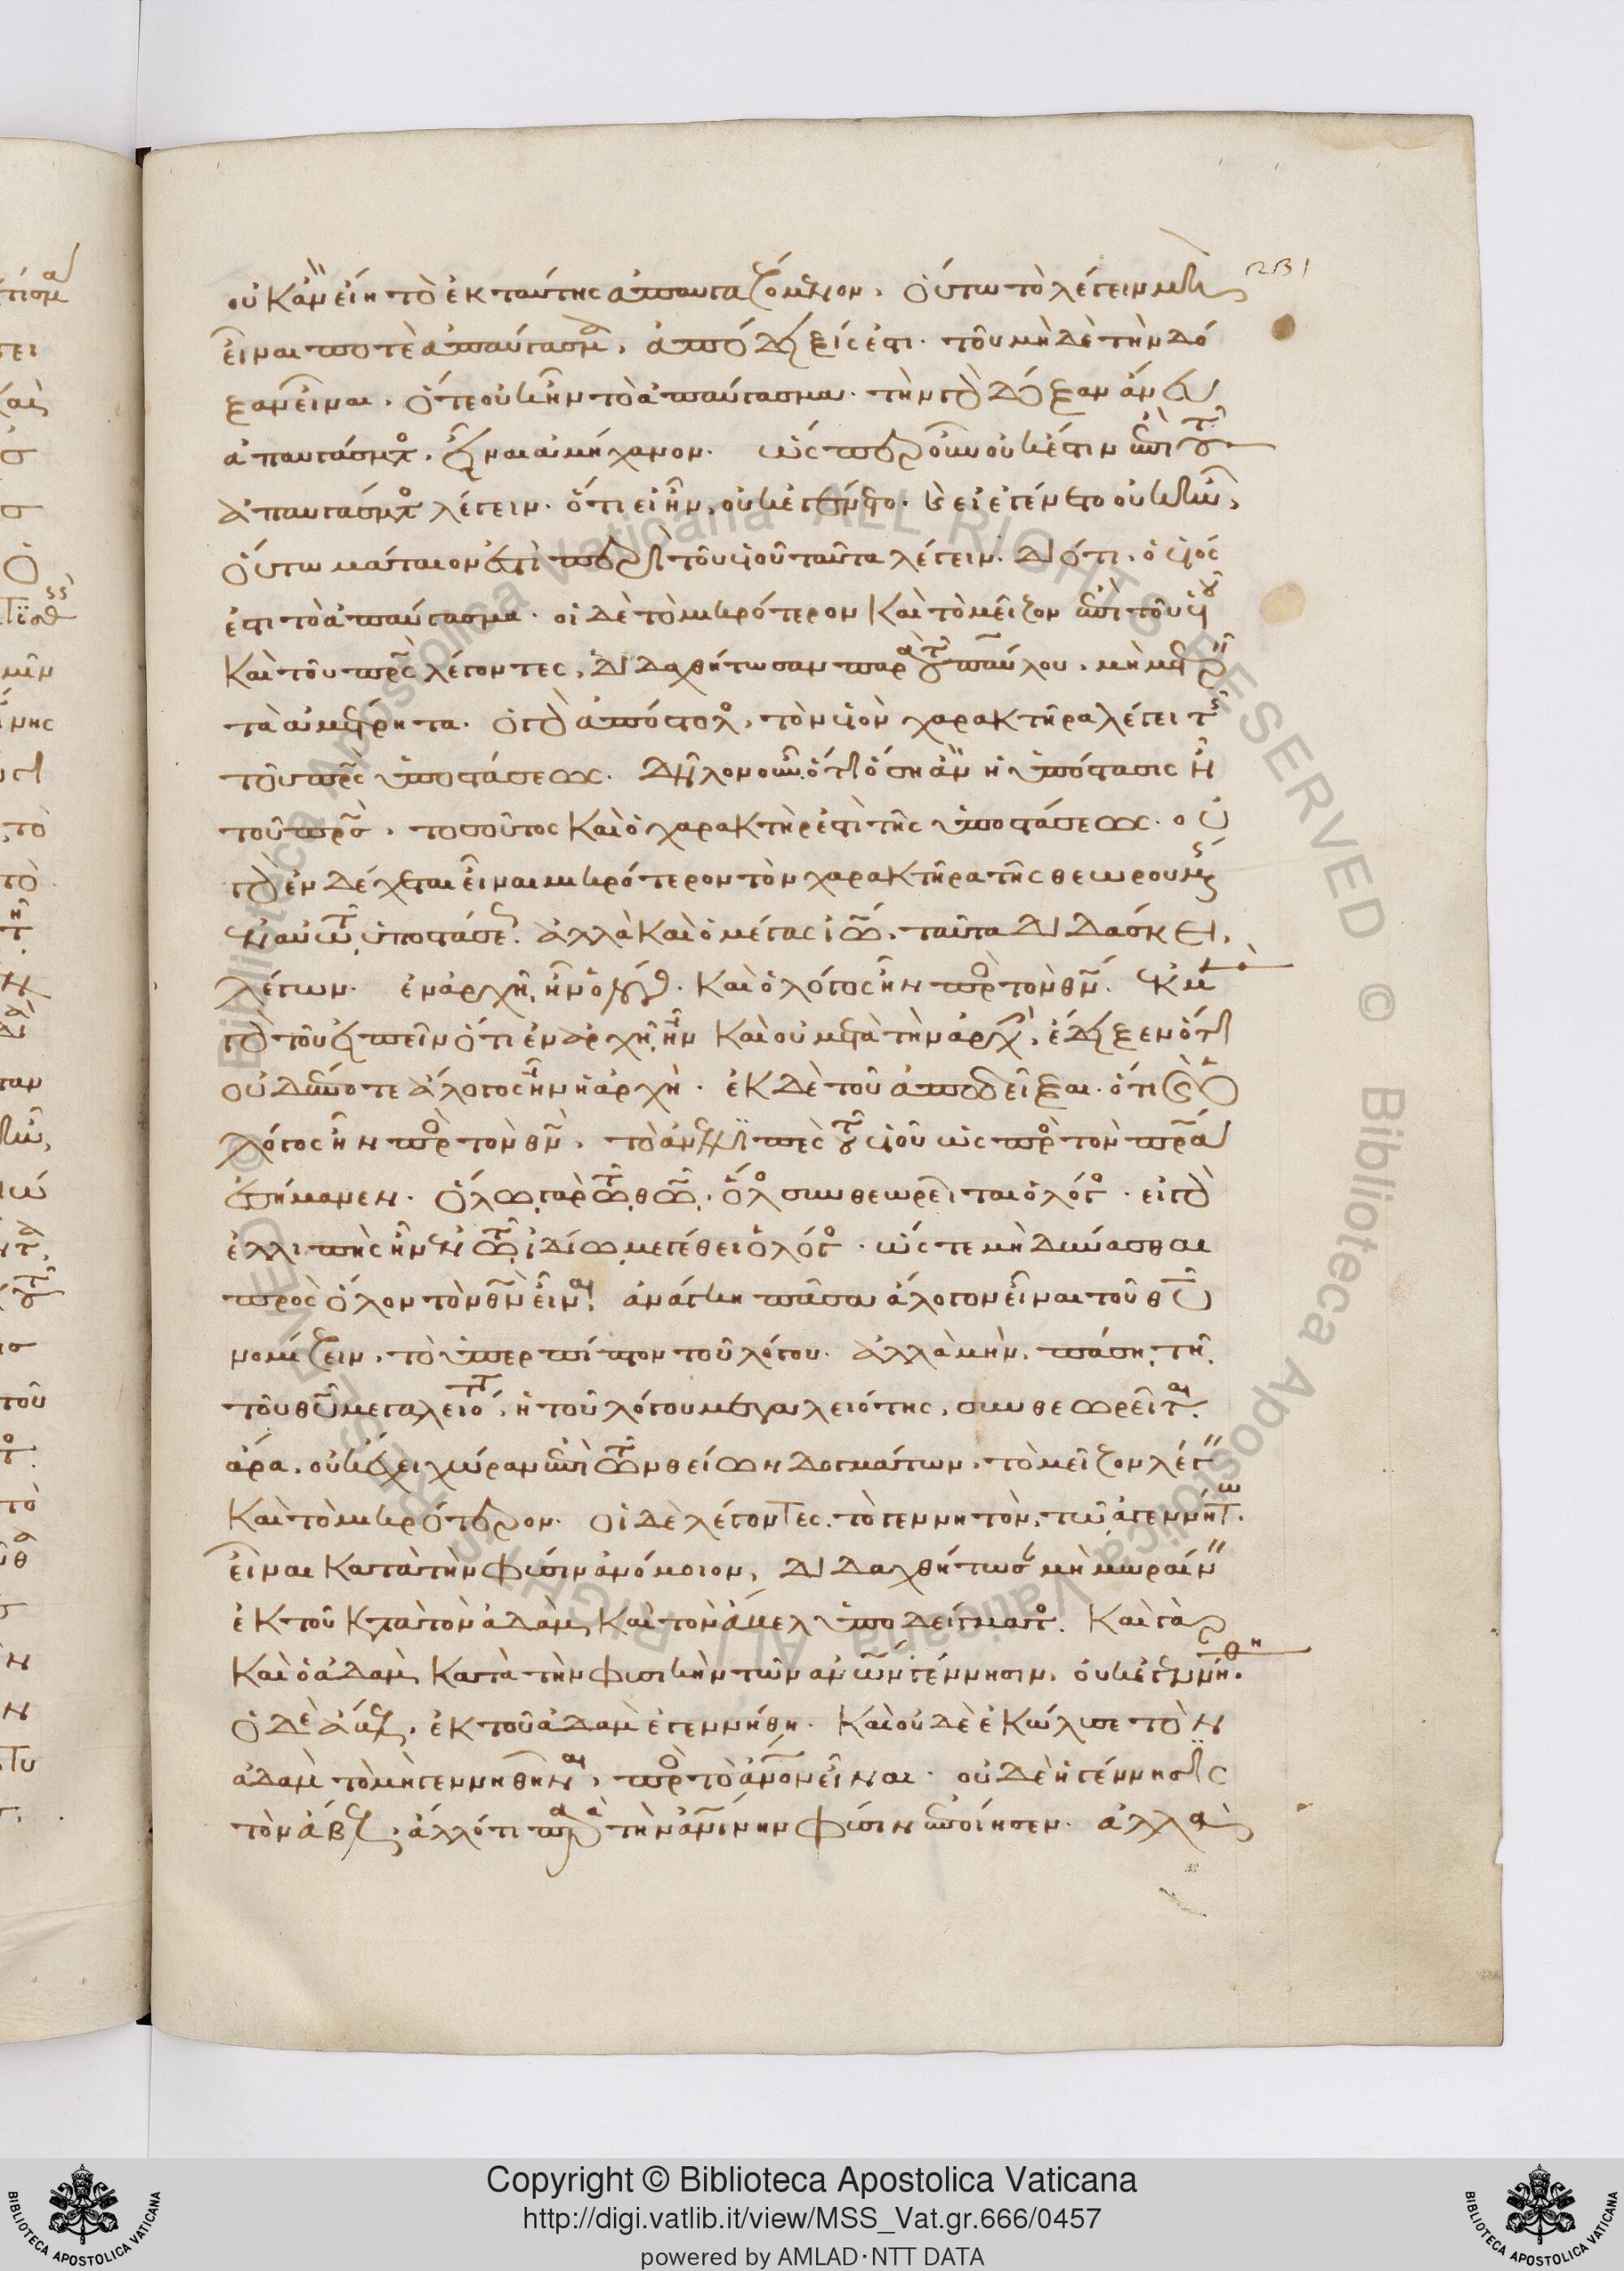 231
οὐκ ἂν εἴη τὸ ἐκ ταύτης ἀπαυγαζόμενον, οὕτω τὸ λέγειν μὴ
εἶναί ποτε ἀπαύγασμα, ἀπόδειξίς ἐστι τοῦ μηδὲ τὴν δό
ξαν εἶναι, ὅτε οὐκ ἦν τὸ ἀπαύγασμα. τὴν γὰρ δόξαν ἄνευ
ἀπαυγάσματος εἶναι ἀμήχανον. ὥσπερ οὖν οὐκ ἔστιν ἐπὶ τοῦ
ἀπαυγάσματος λέγειν ὅτι εἰ ἦν, οὐκ ἐγένετο. καὶ εἰ ἐγένετο οὐκ ἦν,
οὕτω μάταιον ἐστὶ περὶ τοῦ υἱοῦ ταῦτα λέγειν. διότι ὁ υἱός
ἐστι τὸ ἀπαύγασμα. οἱ δὲ τὸ μικρότερον καὶ τὸ μεῖζον ἐπὶ τοῦ υἱοῦ
καὶ τοῦ πρς λέγοντες, διδαχθήτωσαν παρὰ τοῦ παύλου, μὴ μετρεῖν
τὰ ἀμέτρητα. ὁ γὰρ ἀπόστολος, τὸν υἱὸν χαρακτῆρα λέγει τῆς
τοῦ πρς ὑποστάσεως. δῆλον οὖν ὅτι ὅση ἂν ἡ ὑπόστασις ἦ
τοῦ πρς, τοσοῦτος καὶ ὁ χαρακτήρ ἐστι τῆς ὑποστάσεως. οὐ
γὰρ ἐνδέχεται εἶναι μικρότερον τὸν χαρακτῆρα τῆς θεωρουμένης
ἐν αὐτῷ ὑποστάσεως. ἀλλὰ καὶ ὁ μέγας ἰω, ταῦτα διδάσκει,
λέγων. ἐν ἀρχῇ ἦν ὁ λόγος. καὶ ὁ λόγος ἦν πρὸς τὸν θν. ἐκ μὲν
γὰρ τοῦ εἰπεῖν ὅτι ἐν ἀρχῇ ἦν καὶ οὐ μετὰ τὴν ἀρχὴν, ἔδειξεν ὅτι
οὐδέποτε ἄλογος ἦν ἡ ἀρχὴ. ἐκ δὲ τοῦ ἀποδεῖξαι ὅτι καὶ ὁ
λόγος ἦν πρὸς τὸν θν, τὸ ἀνελλιπὲς τοῦ υἱοῦ ὡς πρὸς τὸν πρα
ἐσήμανεν. ὅλῳ γὰρ τῷ θω, ὅλος συνθεωρεῖται ὁ λόγος. εἰ γὰρ
ἐλλιπὴς ἦν ἐν τῷ ἰδίῳ μεγέθει ὁ λόγος, ὥστε μὴ δύνασθαι
πρὸς ὅλον τὸν θν εἶναι, ἀνάγκη πᾶσα ἄλογον εἶναι τοῦ θυ
νομίζειν, τὸ ὑπερπίπτον τοῦ λόγου. ἀλλὰ μὴν πάσῃ τῇ
τοῦ θυ μεγαλειότητι, ἡ τοῦ λόγου μεγαλειότης, συνθεωρεῖται.
ἄρα, οὐκ ἔχει χώραν ἐπὶ τῶν θείων δογμάτων, τὸ μεῖζον λέγειν
καὶ τὸ μικρότερον. οἱ δὲ λέγοντες τὸ γεννητὸν τῷ ἀγεννήτῳ
εἶναι κατὰ τὴν φύσιν ἀνόμοιον, διδαχθήτωσαν μὴ μωραίνειν
ἐκ τοῦ κατὰ τὸν ἀδὰμ καὶ τὸν ἄβελ ὑποδείγματος. καὶ γὰρ
καὶ ὁ ἀδὰμ κατὰ τὴν φυσικὴν τῶν ανων γέννησιν, οὐκ ἐγεννήθη.
ὁ δὲ ἄβελ, ἐκ τοῦ ἀδὰμ ἐγεννήθη. καὶ οὐδὲ ἐκώλυσε τὸν
ἀδὰμ τὸ μὴ γεννηθῆναι, πρὸς τὸ ανον εἶναι. οὐδὲ ἡ γέννησις
τὸν ἄβελ, ἄλλό τι παρὰ τὴν ανίνην φύσιν ἐποίησεν. ἀλλὰ
Copyright © Biblioteca Apostolica Vaticana
http://digi.vatlib.it/view/MSS_Vat.gr.666/0457
powered by AMLAD·NTT DATA